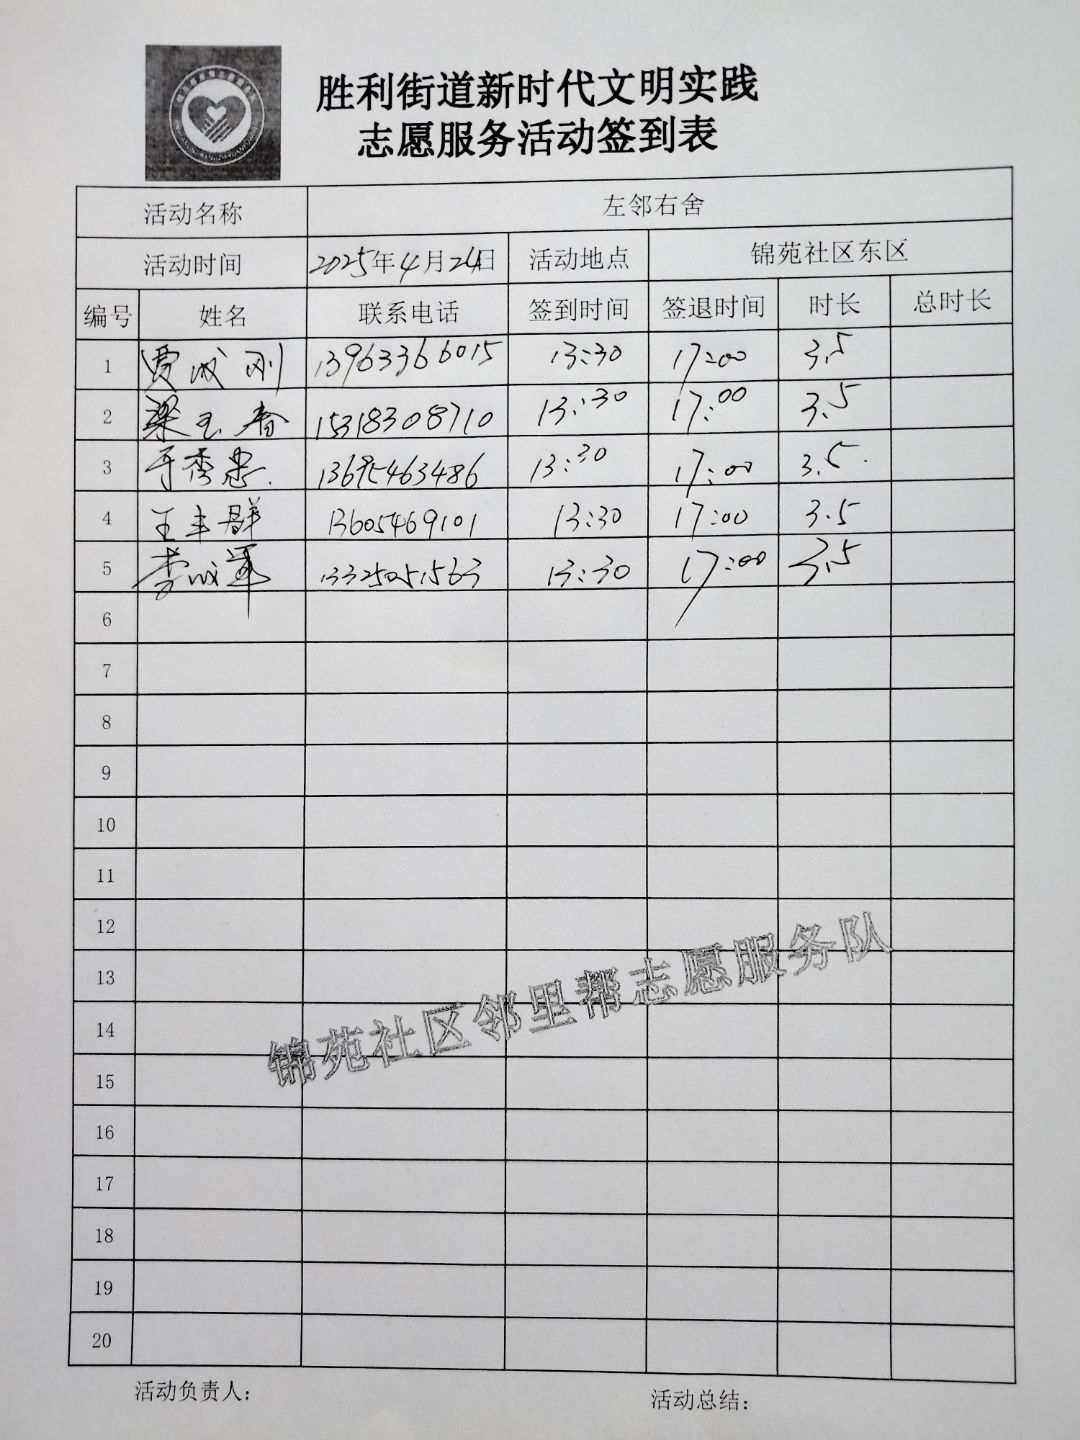 胜利街道新时代文明实践
志愿服务活动签到表
活动名称 左邻右舍
活动时间 2025年4月24日 活动地点 锦苑社区东区
编号 姓名 联系电话 签到时间 签退时间 时长 总时长
1 贾成刚 13963366015 13:30 17:00 3.5
2 梁玉春 15318308710 13:30 17:00 3.5
3 于秀忠 13695463486 13:30 17:00 3.5
4 王丰群 13605469101 13:30 17:00 3.5
5 李成军 13325051563 13:30 17:00 3.5
6
7
8
9
10
11
12
13
14
15
16
17
18
19
20
锦苑社区邻里帮志愿服务队
活动负责人： 活动总结：